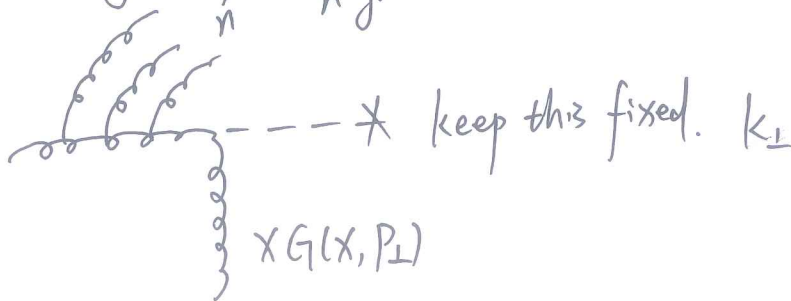 n
keep this fixed. k⊥
xG(x, P⊥)